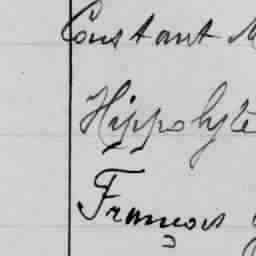 Constant
Hippolyte
François